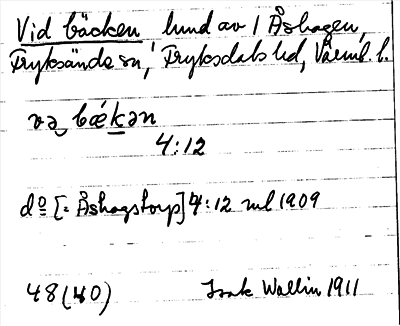 Vid bäcken lund av / Åshagen,
Fryksände sn, Fryksdals hd, Värml. l.
və bǽkən
4:12
do [= Åshagstorp] 4:12 rul 1909
48 (40) Isak Wallin 1911